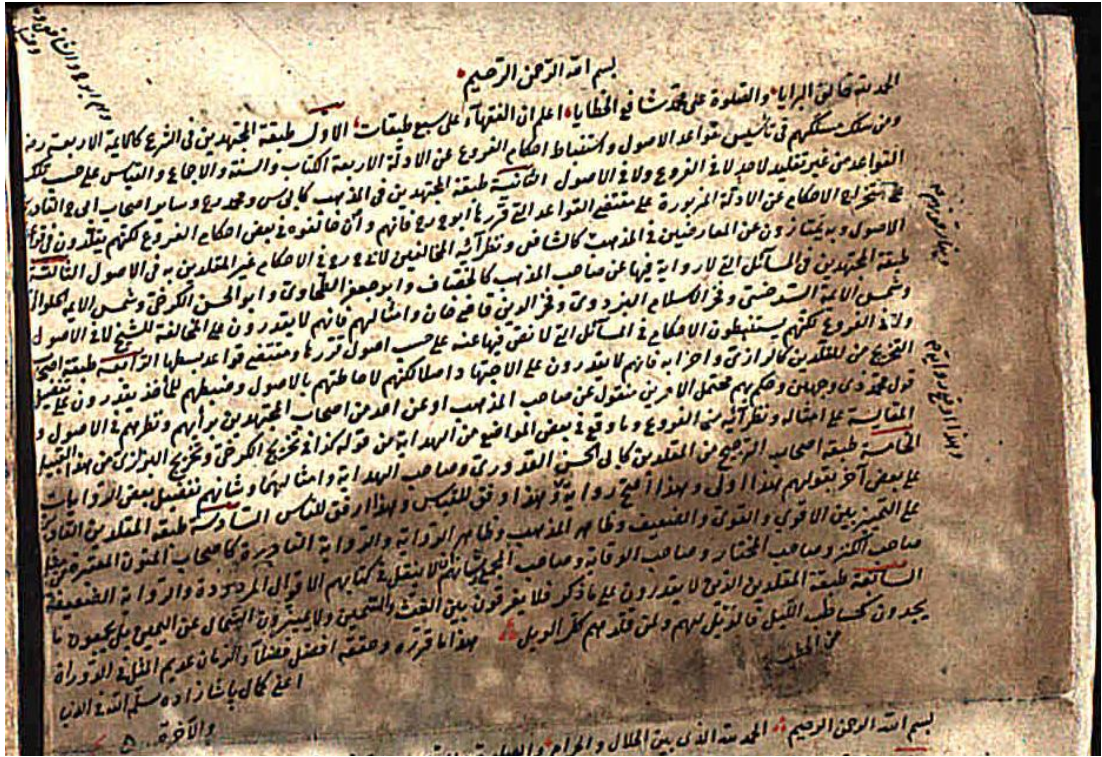 بسم الله الرحمن الرحيم
الحمد لله خالق البرايا والصلوة على محمد شافع الخطايا اعلم ان الفقهآء على سبع طبقات الاولى طبقة المجتهدين فى الشرع كالائمة الاربعة رضـ
ومن سلك مسلكهم فى تأسيس قواعد الاصول واستنباط احكام الفروع عن الادلة الاربعة الكتاب والسنة والاجماع والقياس على حسب تلك
القواعد من غير تقليد لاحد لا فى الفروع ولا فى الاصول الثانية طبقة المجتهدين فى المذهب كابى يس ومحمد رح وسائر اصحاب ابى ح القادرين
على استخراج الاحكام عن الادلة المزبورة على مقتضى القواعد التى قررها ابو ح رح فانهم وان خالفوه فى بعض احكام الفروع لكنهم يقلدون فى قواعد
الاصول وبه يمتازون عن المعارضين فى المذهب كالشافعى ونظرآئه المخالفين لابى ح رح فى الاحكام غير المقلدين به فى الاصول الثالثة
طبقة المجتهدين فى المسائل التى لا رواية فيها عن صاحب المذهب كالخصاف وابو جعفر الطحاوى وابو الحسن الكرخى وشمس الائمة الحلوانى
وشمس الائمة السرخسى وفخر الاسلام البزدوى وفخر الدين قاضى خان وامثالهم فانهم لا يقدرون على المخالفة للشيخ لا فى الاصول
ولا فى الفروع لكنهم يستنبطون الاحكام فى المسائل التى لا نص فيها عنه على حسب اصول قررها ومقتضى قواعد بسطها الرابعة طبقة اصحاب
التخريج من المقلدين كالرازى واحزابه فانهم لا يقدرون على الاجتهاد اصلا لكنهم لاحاطتهم بالاصول وضبطهم للمأخذ يقدرون على تفصيل
قول مجمل ذى وجهين وحكم مبهم محتمل الامرين منقول عن صاحب المذهب او عن احد من اصحاب المجتهدين برأيهم ونظرهم فى الاصول و
المقايسة على امثاله ونظرآئه من الفروع وما وقع فى بعض المواضع من الهداية من قوله كذا فى تخريج الكرخى وتخريج الرازى من هذا القبيل
الخامسة طبقة اصحاب الترجيح من المقلدين كابى الحسن القدورى وصاحب الهداية وامثالهما وشانهم تفضيل بعض الروايات
على بعض آخر بقولهم هذا اولى وهذا اصح رواية وهذا اوفق للقياس وهذا ارفق للناس السادسة طبقة المقلدين القادرين
على التمييز بين الاقوى والقوى والضعيف وظاهر المذهب وظاهر الرواية والرواية النادرة كاصحاب المتون المعتبرة مثل
صاحب الكنز وصاحب المختار وصاحب الوقاية وصاحب المجمع شانهم ان لا ينقل فى كتابهم الاقوال المردودة والرواية الضعيفة
السابعة طبقة المقلدين الذين لا يقدرون على ما ذكر فلا يفرقون بين الغث والسمين ولا يميزون الشمال عن اليمين بل يجمعون ما
يجدون كحاطب الليل فالويل لهم ولمن قلدهم كل الويل هذا ما قرره وحققه افضل فضلاء الزمان عديم المثل فى الدوران
اعنى كمال پاشا زاده سلمه الله فى الدنيا
والآخرة
بسم الله الرحمن الرحيم الحمد لله الذى بين الحلال والحرام